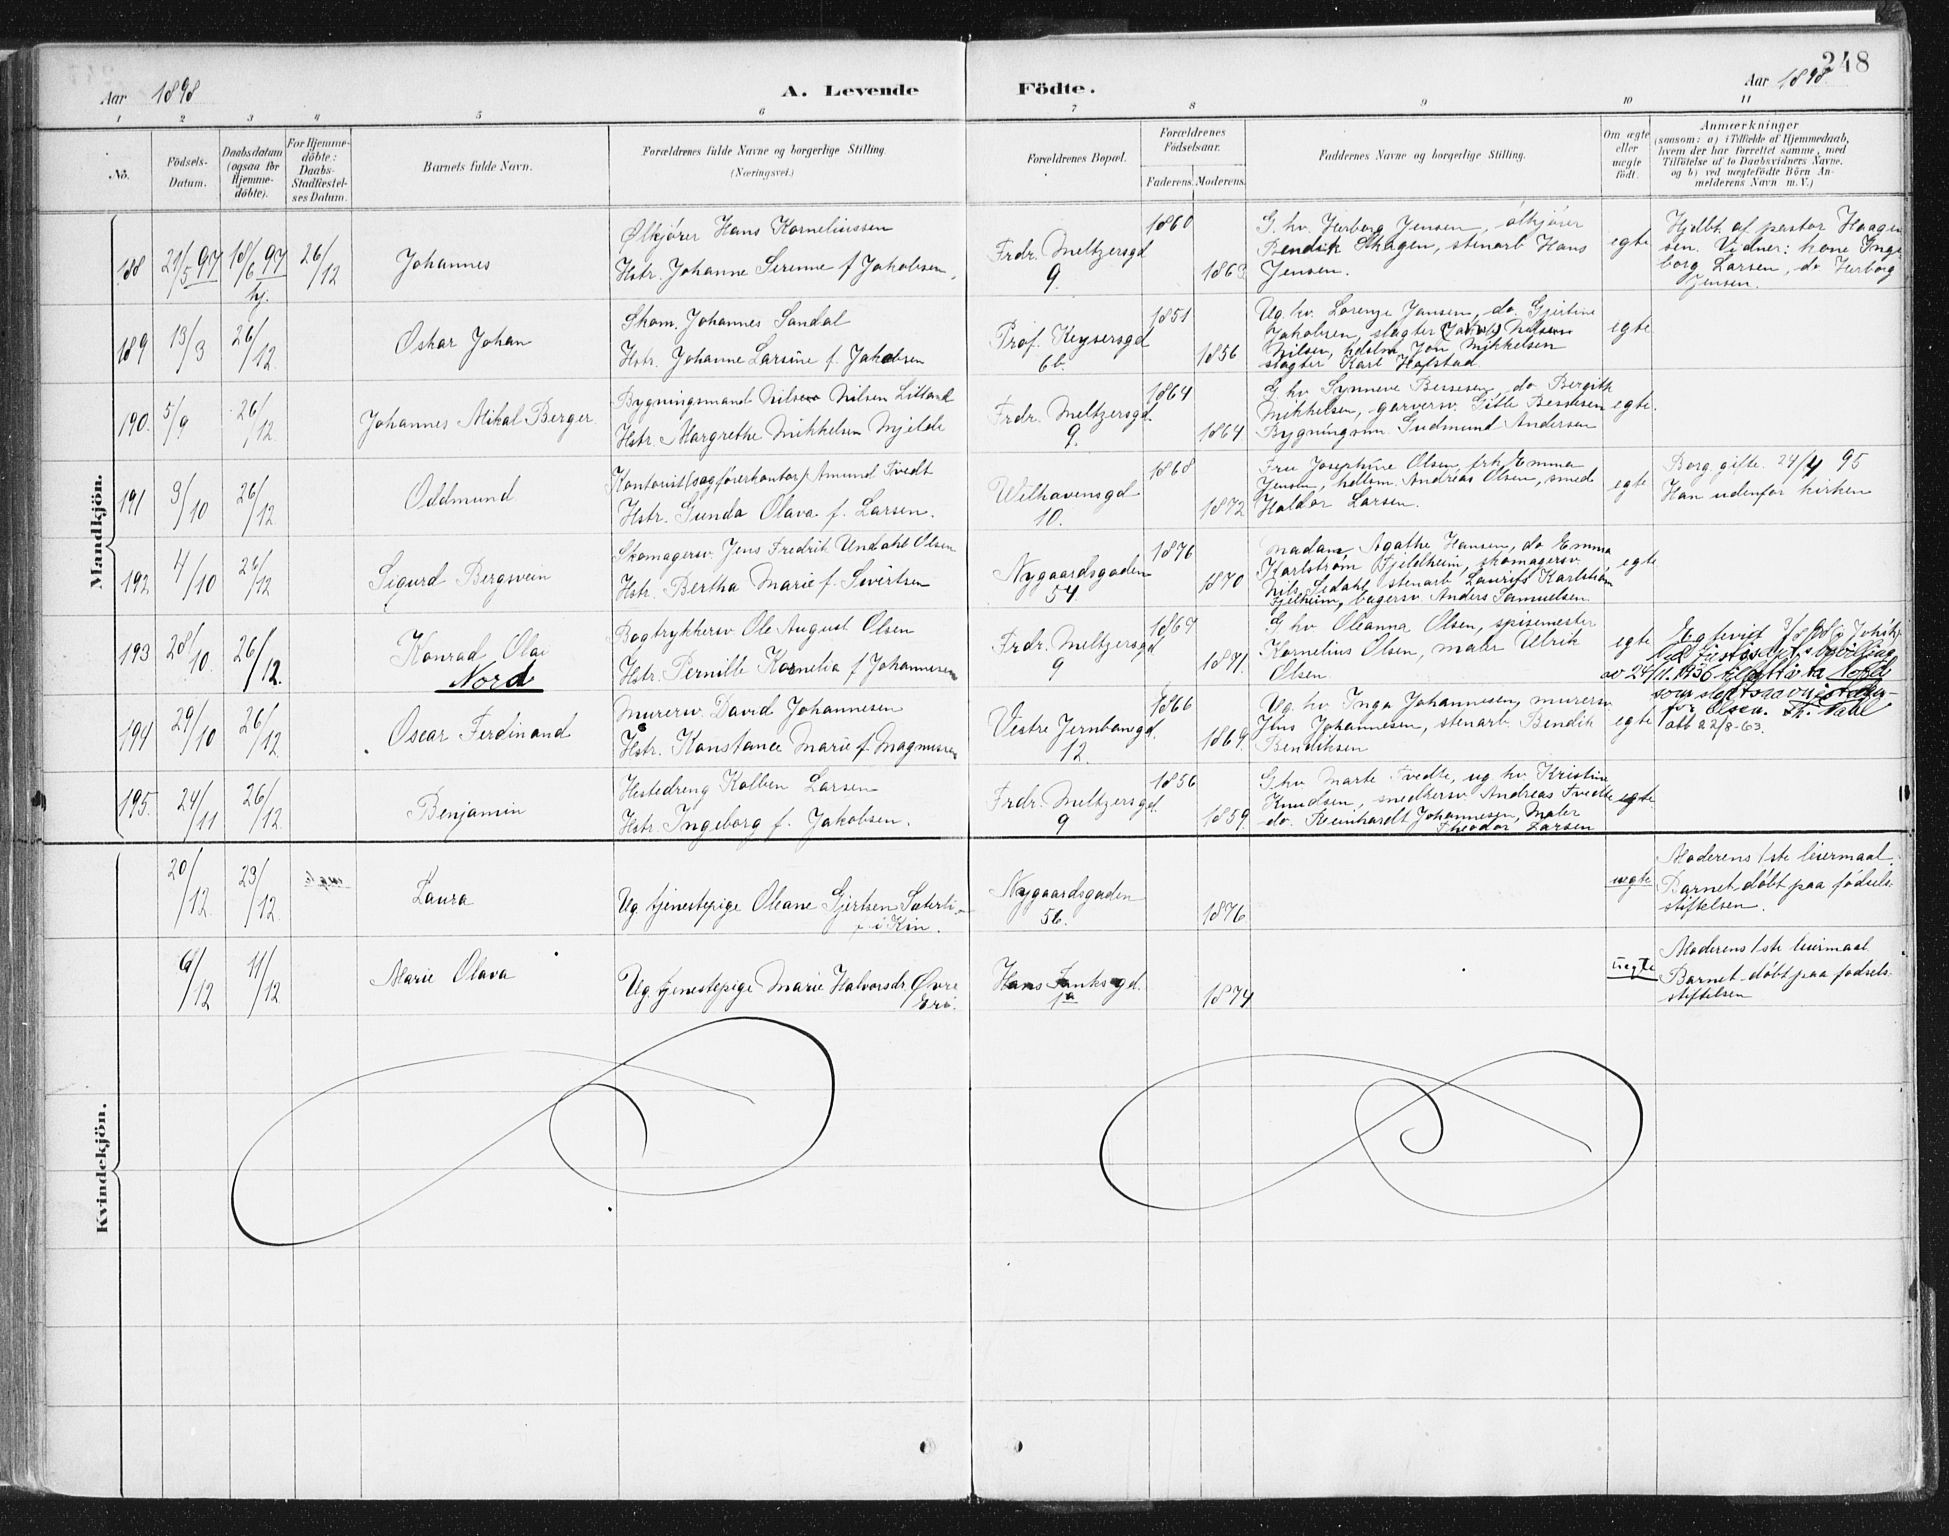 248
Aar 1898
A. Levende Födte.
Aar 1898
1 2 3 4 5 6 7 8 9 10 11
No.
Födsels-Datum.
Daabsdatum (ogsaa for Hjemme-döbte).
For Hjemme-döbte: Daabs-Stadfæstel-ses Datum.
Barnets fulde Navn.
Forældrenes fulde Navne og borgerlige Stilling.
(Næringsvei.)
Forældrenes Bopæl.
Forældrenes Födselsaar.
Faderens. Moderens.
Faddernes Navne og borgerlige Stilling.
Om ægte eller uægte födt.
Anmærkninger
(saasom: a) i Tilfælde af Hjemmedaab,
hvem der har forrettet samme, med
Tilföielse af to Daabsvidners Navne,
og b) ved uægtefödte Börn An-
melderens Navn m. V.)
Mandkjön.
188 21/5 97 18/6 97 hj. 26/12 Johannes
Ølkjører Hans Korneliussen
Hstr. Johanne Serine f Jakobsen,
Frdr. Meltzersgd 9.
1860 1863
G. hv. Herborg Jensen, ølkjører
Bendik Skagen, stenarb Hans
Jensen.
egte
Hjdbt af pastor Haagen
sen. Vidner: kone Inge
borg Larsen, do Herborg
Jensen.
189 13/3 26/12 Oskar Johan
Skom. Johannes Sandal
Hstr. Johanne Larsine f. Jakobsen
Prof. Keysersgd 6b.
1851 1856
Ug. hv. Lorenze Jansen, do. Gjertine
Jakobsen, slagter Nilsen
Nilsen, Jon Mikkelsen
slagter Karl Hopstad
egte
190. 5/9 26/12. Johannes Mikal Berger
Bygningsmand Nilsen Lilland
Hstr. Margrethe Mikkelsen Mjelde
Frdr. Meltzersgd. 9.
1864 1864
G hv. Synneve Bessesen, do Bergith
Mikkelsen, garversv. Gitle Bessesen
Bygningsm. Gudmund Andersen
egte.
191 3/10 26/12. Oddmund
Kontorist (sagførerkontor) Amund Tvedt
Hstr. Gunda Olava f. Larsen.
Wilhavensgd 10.
1868 1872
Fru Josephine Olsen, frk Emma
Jensen, Andreas Olsen, smed
Haldor Larsen.
egte
Borg. gifte. 24/4 95
Han udenfor kirken
192 4/10 26/12 Sigurd Bergsvein
Skomagersv. Jens Fredrik Undahl Olsen
Hstr. Bertha Marie f. Sivertsen
Nygaardsgaden 54.
1876 1870
Madam Agathe Hansen, do Emma
Karlstrøm Fjeldheim, skomagersv.
Nils Sedahl, stenarb Laurits Karlstrøm
Fjelheim, bagersv. Anders Samuelsen
egte
193 28/10. 26/12. Konrad Olai
Nord
Bogtrykkersv. Ole August Olsen
Hstr. Pernille Kornelia f Johannesen
Frdr. Meltzersgd 9
1869 1871.
G hv Oleanna Olsen, spisemester
Kornelius Olsen, maler Ulrik
Olsen
egte
av 24/1. 1936 ta Nord
som
for Olsen.
att 22/8-63.
194 29/10 26/12. Oscar Ferdinand
Murersv. David Johannesen
Hstr. Konstance Marie f. Magnussen
Vestre Jernbanegd. 12.
1866 1869.
Ug. hv. Inga Johannesen, murersv
Jens Johannesen, stenarb Bendik
Bendiksen
egte
195. 24/11 26/12. Benjamin
Hestedreng Kolben Larsen
Hstr. Ingeborg f. Jakobsen.
Frdr. Meltzersgd. 9
1856 1859.
G hv Marte Tvedte, ug hv. Kristine
Knudsen, snedkersv. Andreas Tvedte
do. Reinhardt Johannesen, Maler
Theodor Larsen
egte
Kvindekjön.
20/12. 23/12. Laura
Ug. tjenestepige Oleane Gjertsen Sæterli
i Kin.
Nygaardsgaden 56.
1876
uegte
Moderens 1ste leiermaal.
Barnet døbt paa fødsels-
stiftelsen.
6/12 11/12 Marie Olava
Ug. tjenestepige Marie Halvorsdr. Øvre
Erø.
Hans Tanksgd. 1a
1874
uegte
Moderens 1ste leiermaal
Barnet døbt paa fødsels-
stiftelsen